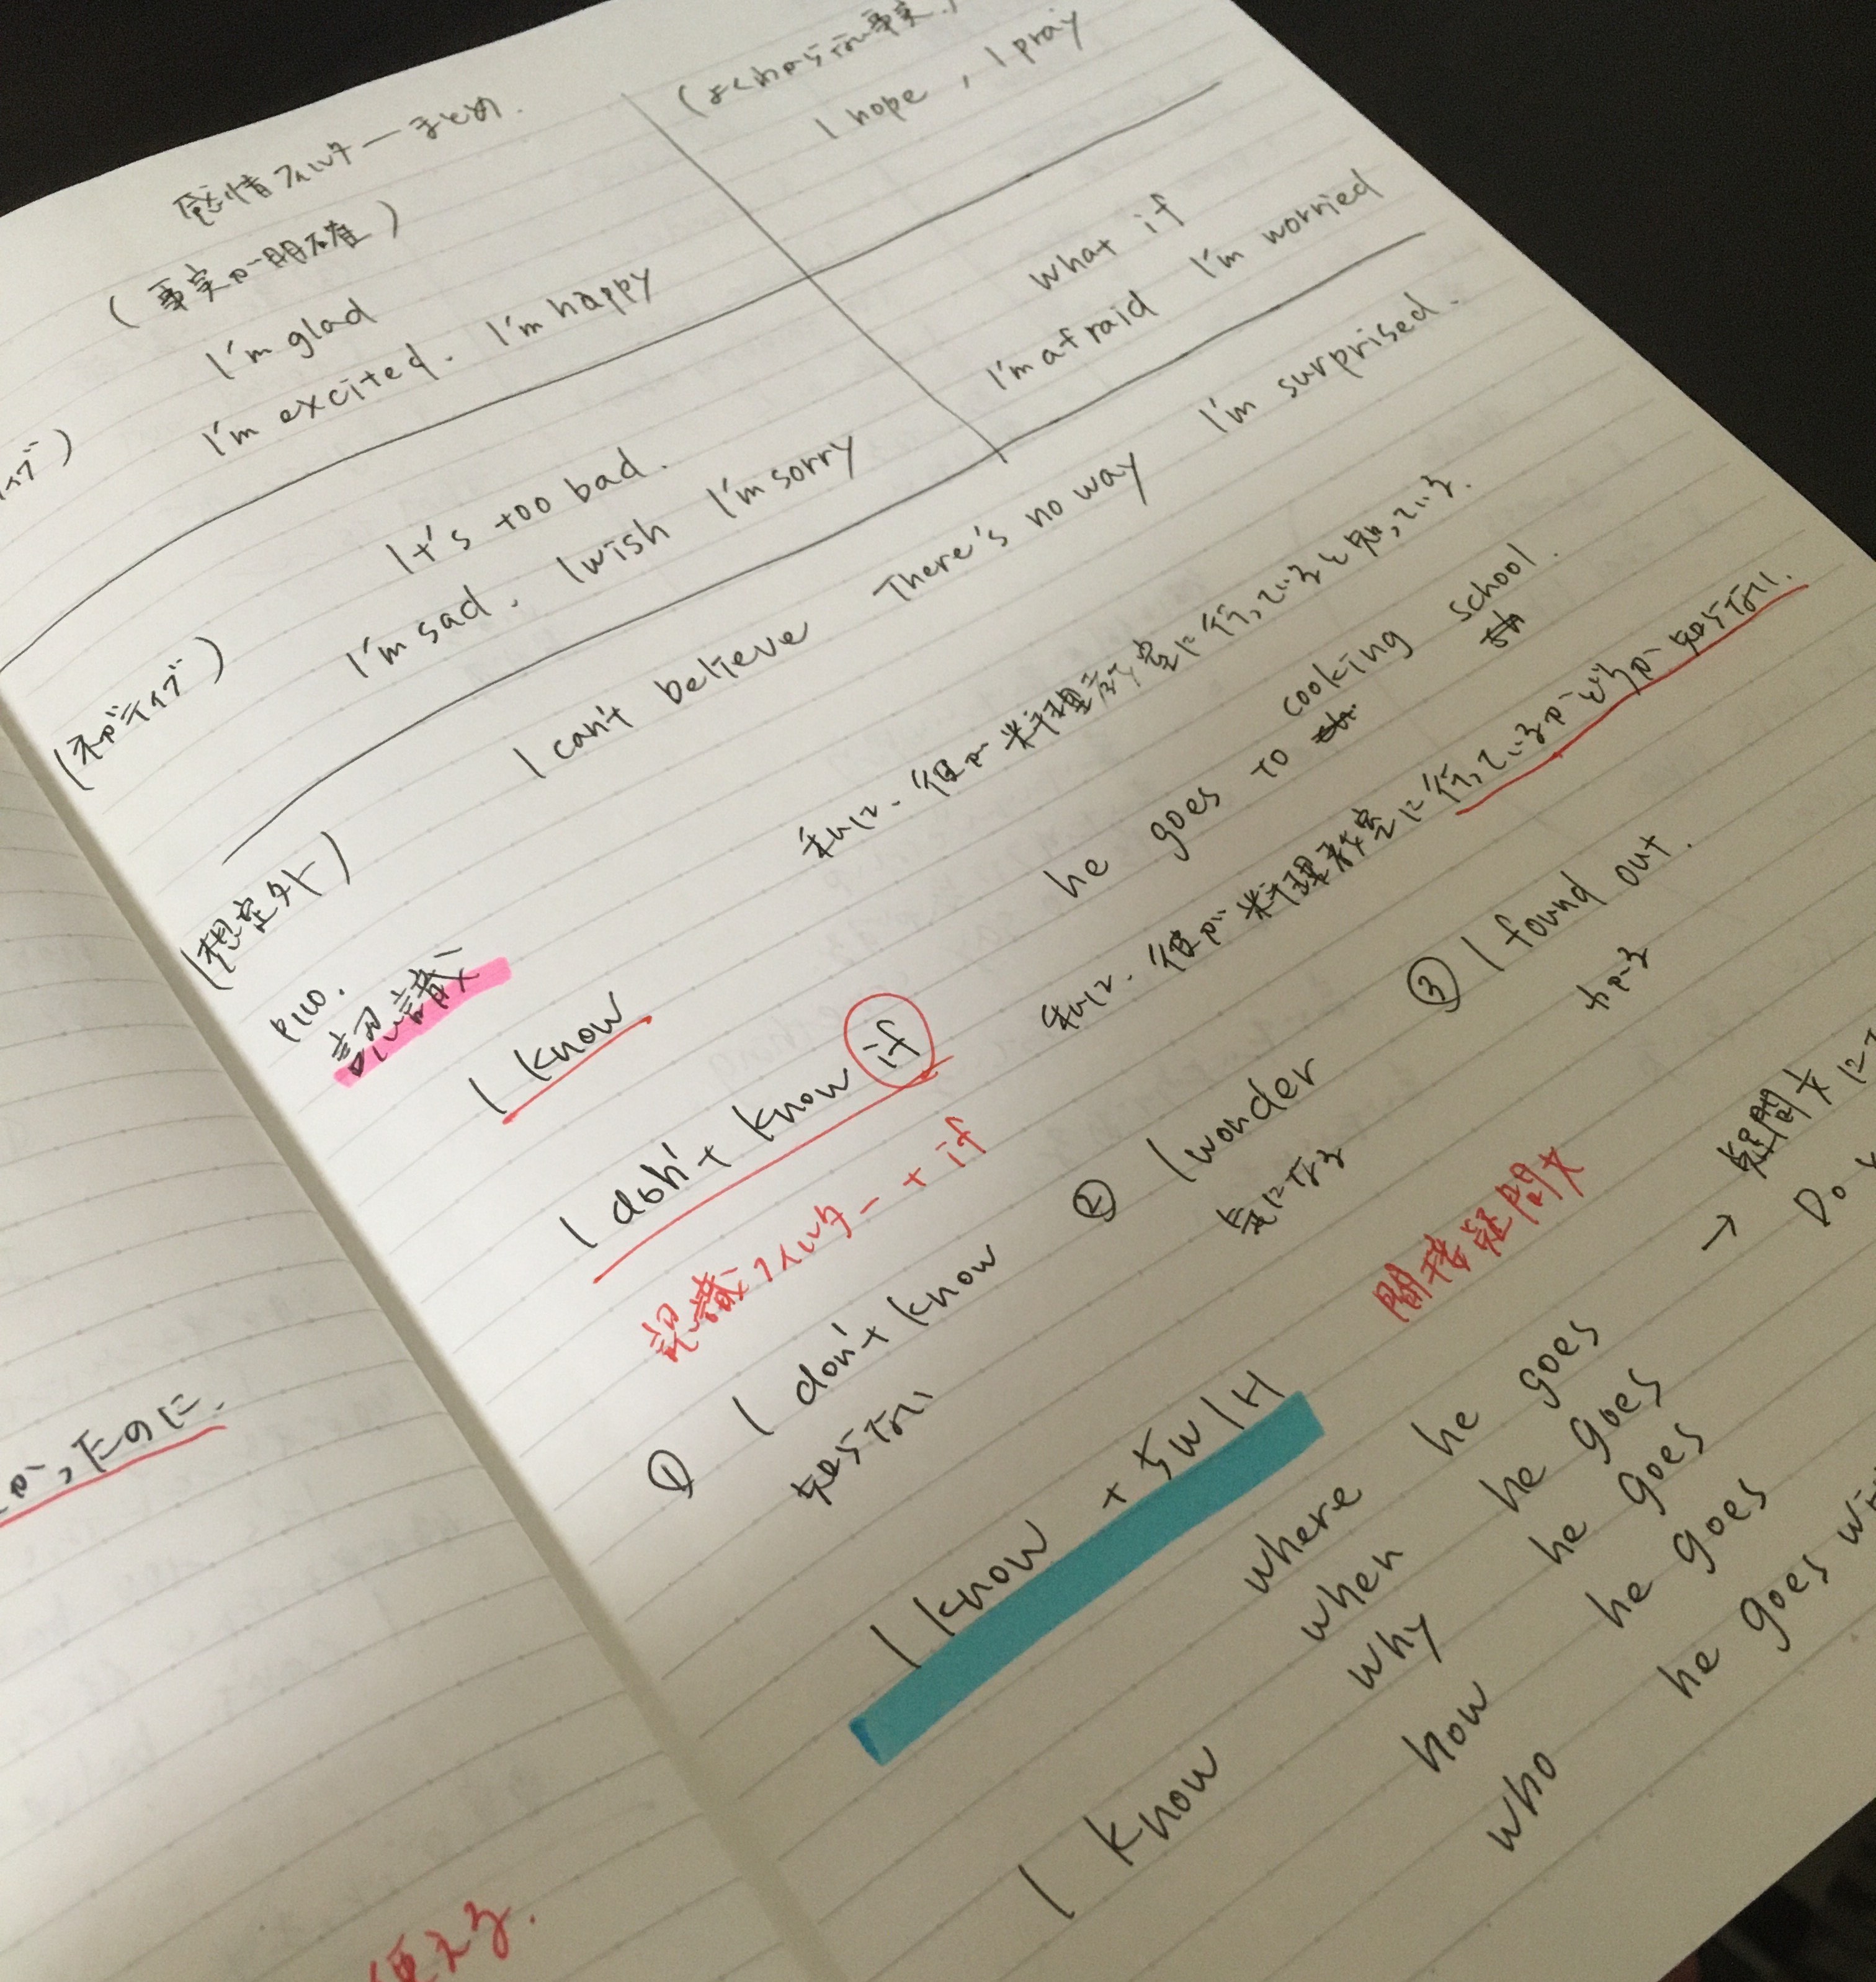 感情フィルターまとめ.
(よくわからない事実)
(事実が明確)
I hope, I pray
I'm glad
I'm excited. I'm happy
what if
I'm afraid I'm worried
It's too bad.
(ネガティブ)
I'm sad. I wish I'm sorry
(想定外)
I can't believe There's no way I'm surprised.
P110.
認識
I know
私は、彼が料理教室に行っていると知っている.
he goes to cooking school.
I don't know if
私は、彼が料理教室に行っているかどうか知らない.
認識フィルター + if
① I don't know ② I wonder ③ I found out.
知らない 気になる わかる
I know + 5W1H
間接疑問文
→ 疑問文に
Do
I know where he goes
when he goes
why he goes
how he goes
who he goes
かったのに.
使える.